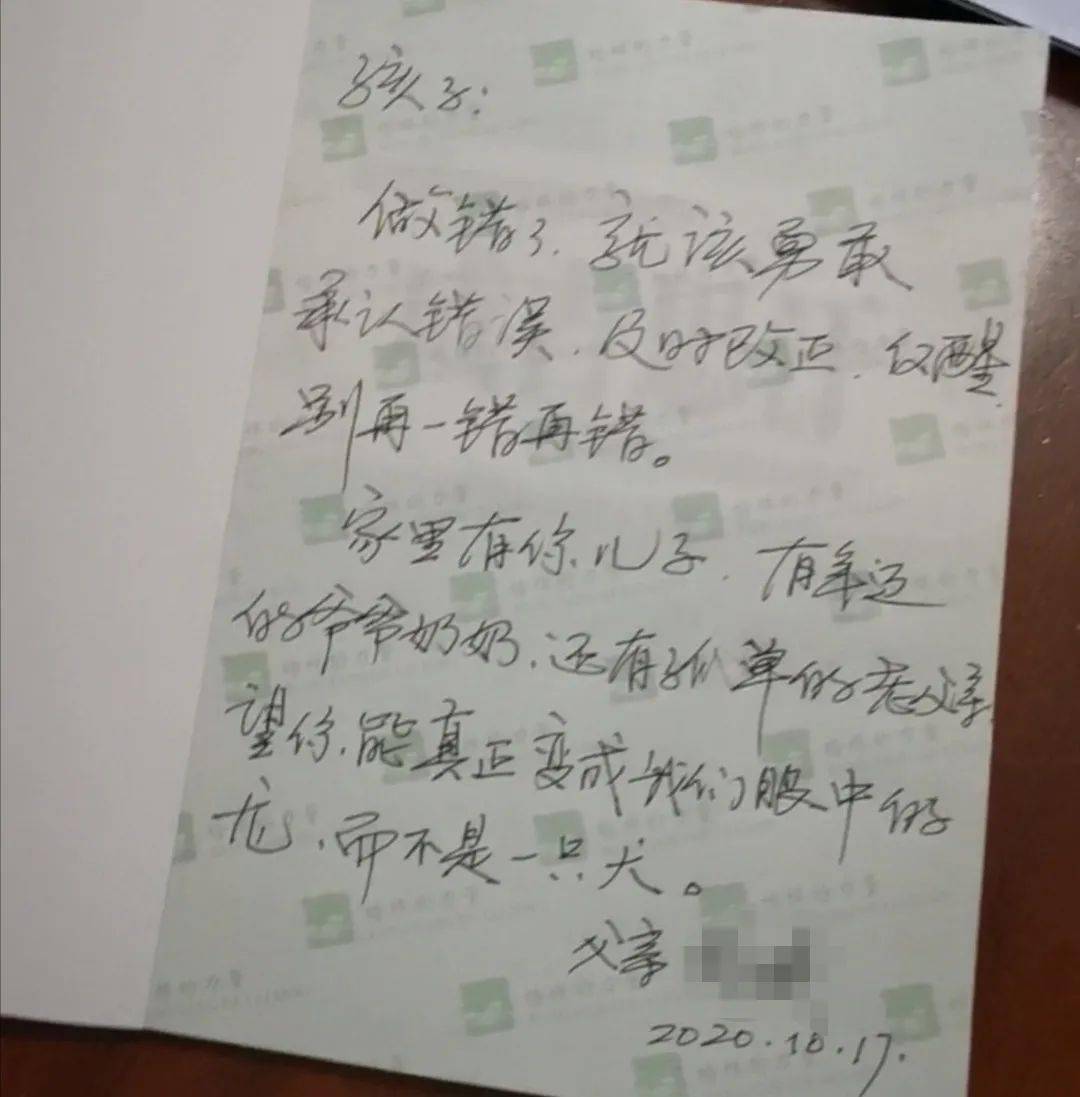 孩子:
做错了,就该勇敢
承认错误,及时改正,仅醒
别再一错再错。
家里有你儿子,有年迈
的爷爷奶奶,还有孤单的老父亲
望你能真正变成我们眼中的
龙,而不是一只犬。
父亲
2020.10.17.